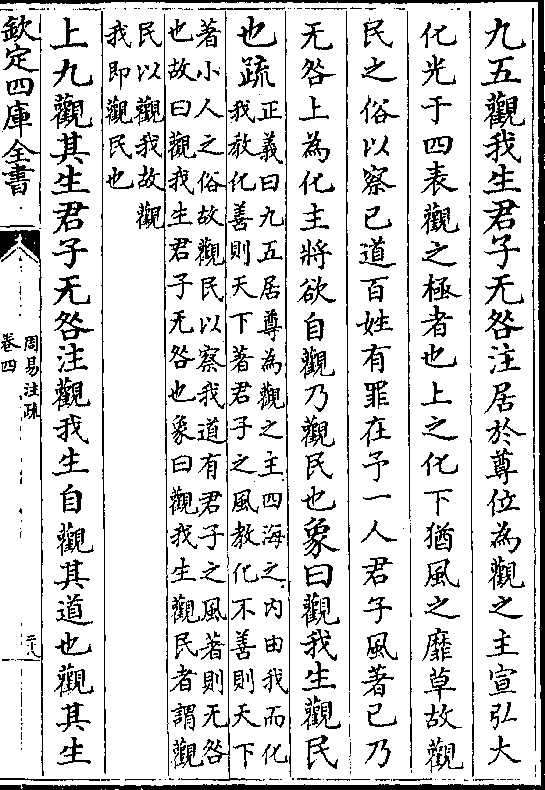 九五觀我生君子无咎注居於尊位為觀之主宣弘大
化光于四表觀之極者也上之化下猶風之靡草故觀
民之俗以察已道百姓有罪在予一人君子風著已乃
无咎上為化主將欲自觀乃觀民也象曰觀我生觀民
也疏正義曰九五居尊為觀之主四海之内由我而化
我教化善則天下著君子之風教化不善則天下
著小人之俗故觀民以察我道有君子之風著則无咎
也故曰觀我生君子无咎也象曰觀我生觀民者謂觀
民以觀我故觀
我即觀民也
上九觀其生君子无咎注觀我生自觀其道也觀其生
欽定四庫全書
周易注疏
卷四
二十八